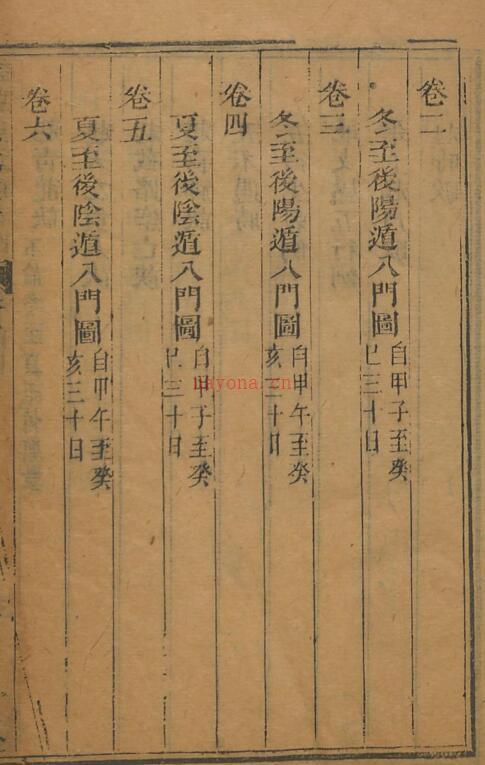 卷二
冬至後陽遁八門圖自甲子至癸巳三十日
卷三
冬至後陽遁八門圖自甲午至癸亥三十日
卷四
夏至後陰遁八門圖自甲子至癸巳三十日
卷五
夏至後陰遁八門圖自甲午至癸亥三十日
卷六